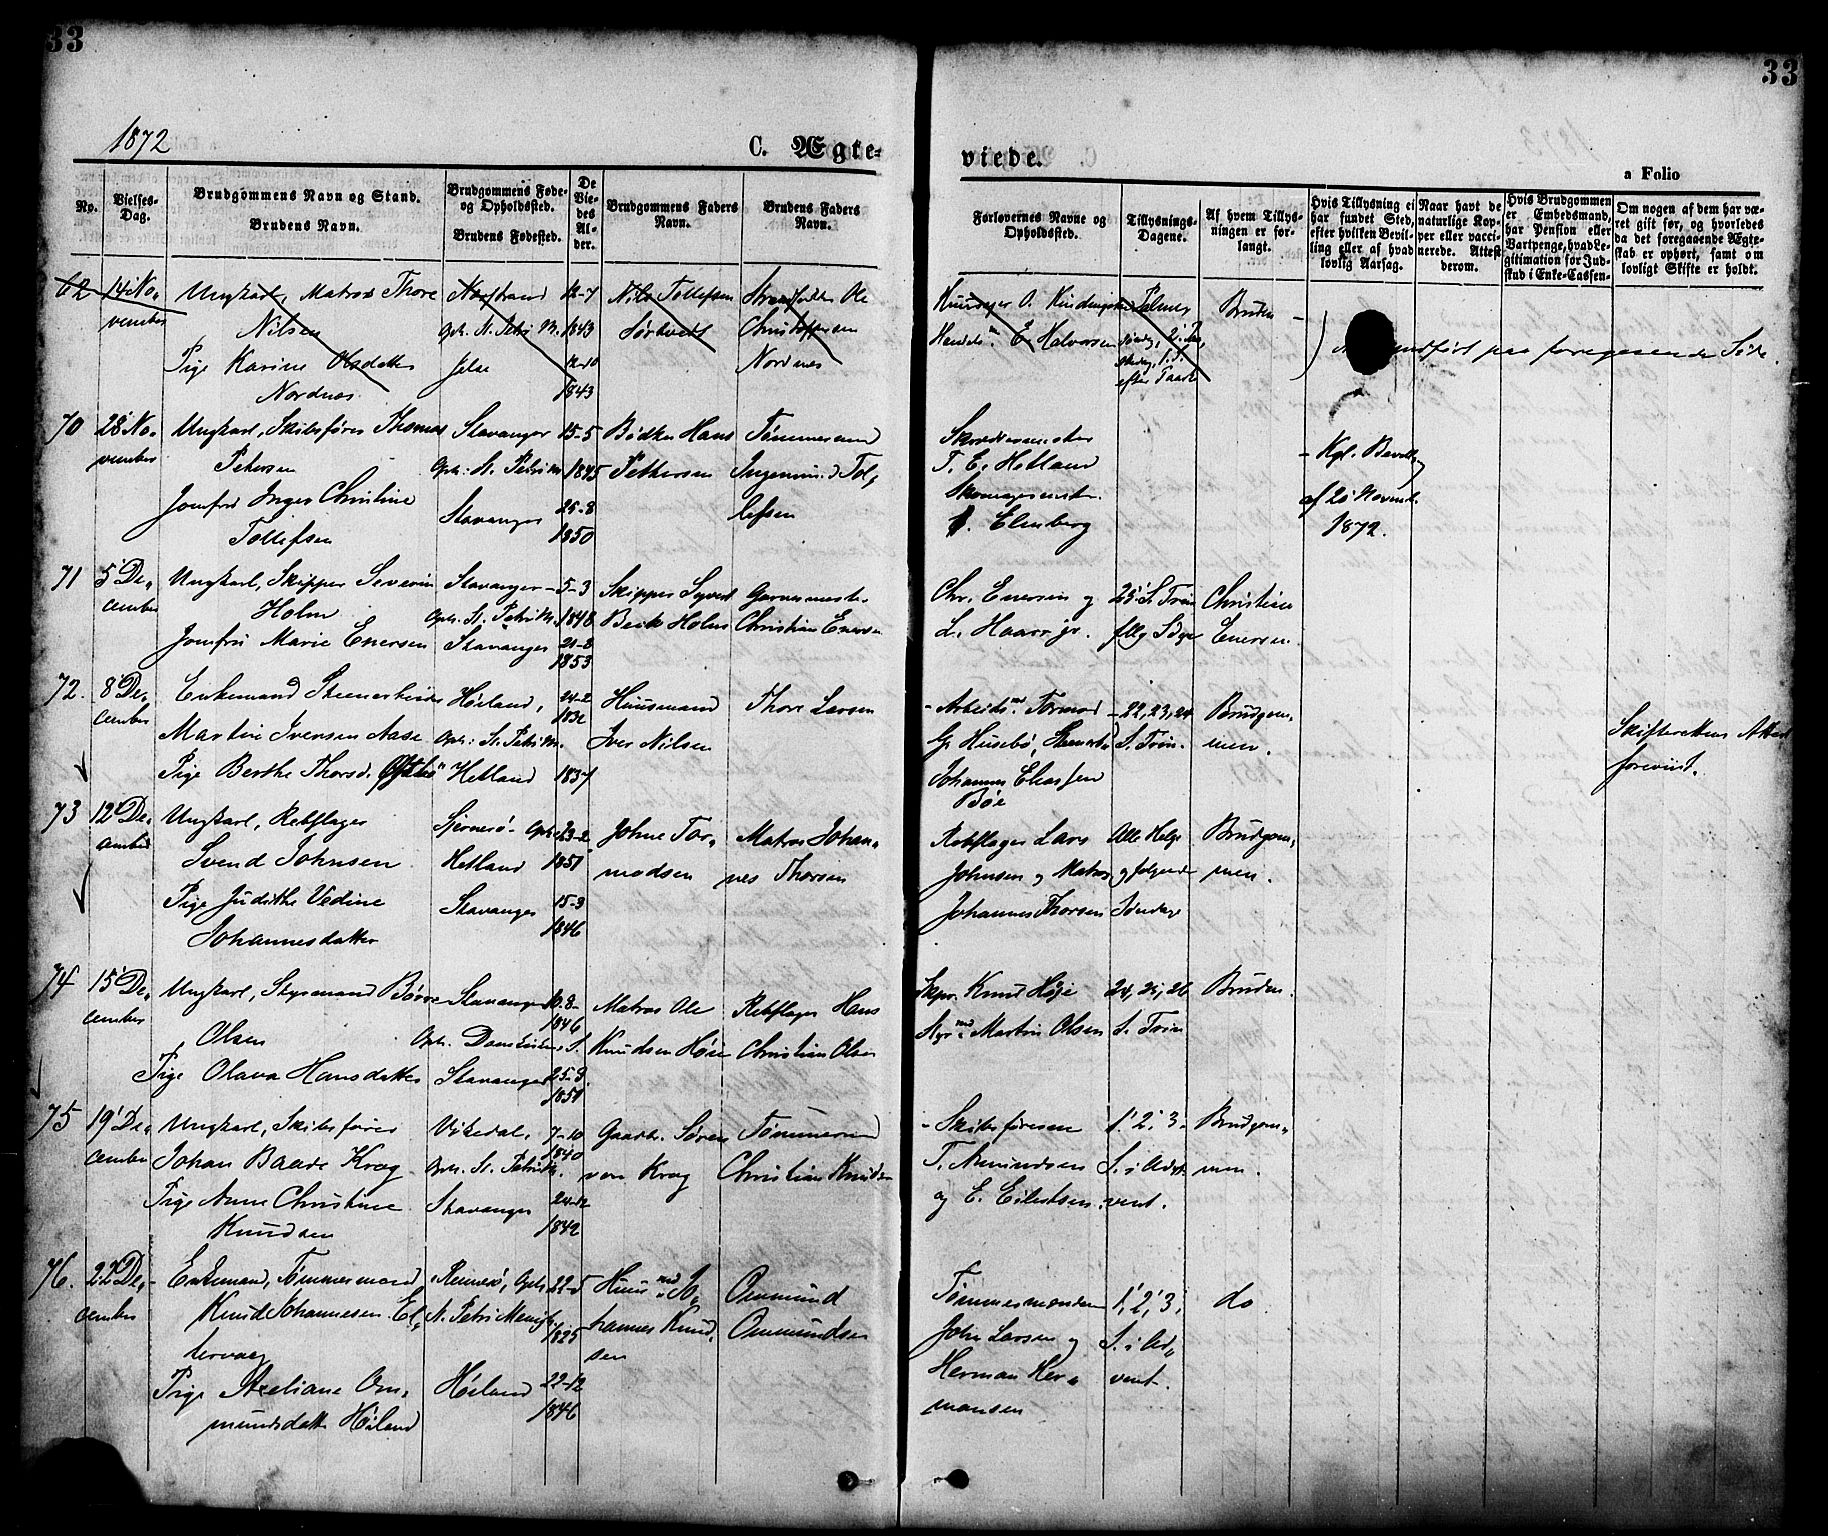 33
33
1872
C. Ægte-
viede.
a Folio
No.
Vielses-
Dag.
Brudgommens Navn og Stand.
Brudens Navn.
Brudgommens Føde-
og Opholdssted.
Brudens Fødested.
De
Vie-
des
Al-
der.
Brudgommens Faders
Navn.
Brudens Faders
Navn.
Forlovernes Navne og
Opholdssted.
Tillysnings-
Dagene.
Af hvem Tillys-
ningen er for-
langt.
Hvis Tillysning ei
har fundet Sted,
efter hvilken Bevil-
ling eller af hvad
lovlig Aarsag.
Naar havt de
naturlige Kop-
per eller vacci-
nerede. Attest
derom.
Hvis Brudgommen
er Embedsmand,
har Pension eller
Vartpenge, hvad Le-
gitimation for Ind-
skud i Enke-Cassen
Om nogen af dem har væ-
ret gift før, og hvorledes
da det foregaaende Ægte-
skab er ophørt, samt om
lovligt Skifte er holdt.
62 14 No,
vember
Ungkarl, Matros Thore
Nilsen
Pige Karine Olsdatter
Nordnes
Nærstrand
Oph. St. Petri M.
Jelse
12-7
1843
12-10
1843
Nils Tollefsen
Christophersen
Nordnes
Handelsm E. Halvorsen
efter Paaske
Bruden
indført paa foregaaende Side.
70 28 No,
vember
Ungkarl, Skibsfører Thomas
Petersen
Jomfru Inger Christine
Tollefsen
Stavanger
Oph: St. Petri M.
Stavanger
15-5
1845
25-8
1850
Bødker Hans
Pettersen
Tømmermand
Ingemund Tol,
lefsen
Skrædermester
T. E. Hetland
Skomagermester
Elenberg
- Kgl. Bevilling
af 20 Novemb.
1872.
71 5 De,
cember
Ungkarl, Skipper Severin
Holm
Jomfru Marie Enersen
Stavanger
Oph. St. Petri M.
Stavanger
5-3
1848
21-8
1853
Skipper Syvert
Beck Holm
Garvermester
Christian Enersen
Chr. Enersen og
L. Haaer jr.
25 S. Trin
flg Sdge
Christian
Enersen.
72. 8 De,
cember
Enkemand Steenarbeider
Martin Iversen Aase
Pige Berthe Thorsd. Østebø
Høiland,
Oph: St. Petri M.
Hetland
24-2
1837
Huusmand
Iver Nilsen
Thore Larsen
- Arbeidsm. Tormod
G. Husebø,
Johannes Eliassen
Bøe
- 22, 23, 24
S. Trin.
Brudgom,
men.
Skifterettens Attest
foreviist.
73 12 De,
cember
Ungkarl, Rebslager
Svend Johnsen
Pige Judithe Vedine
Johannesdatter
Sjernerø- Oph:
Hetland
Stavanger
23-2
1851
15-3
1846
Johne Tor,
modsen
Matros Johan,
nes Thorsen
Rebslager Lars
Johnsen og Matros
Johannes Thorsen
Alle Helge
og følgende
Søndage
Brudgom,
men.
74 15 De,
cember
Ungkarl, Styrmand Børre
Olsen
Pige Olava Hansdatter
Stavanger
Oph. Domkirkens S.
Stavanger
10-8-
1846
25-9.
1851
Matros Ole
Knudsen Høie
Rebslager Hans
Christian Olsen
Skpr. Knud Høie
Styrmd Martin Olsen
24, 25, 26
S. Trin
Bruden.
75 19 De,
cember
Ungkarl, Skibsfører
Johan Baade Krag
Pige Anne Christine
Knudsen
Vikedal,
Oph. St. Petri M.
Stavanger
7-10
1840
24-12
1842
Gaardbr. Søren
von Krag
Tømmermand
Christian Knudsen
- Skibsførerne
T. Amundsen
og E. Eilertsen.
1, 2, 3.
S. i Ad,
vent.
Brudgom,
men.
76. 22 De,
cember
Enkemand, Tømmermand
Knud Johannesen El,
tervaag
Pige Axeliane Om,
mundsdatt. Høiland
Rennesø, Oph:
St. Petri Menigh.
Høiland
22-5
1825
22-12
1846
Huusmd Jo,
hannes Knud,
sen
Ommund
Ommundsen
Tømmermændene
John Larsen og
Herman Her,
mansen
1, 2, 3,
S. i Ad,
vent.
do.